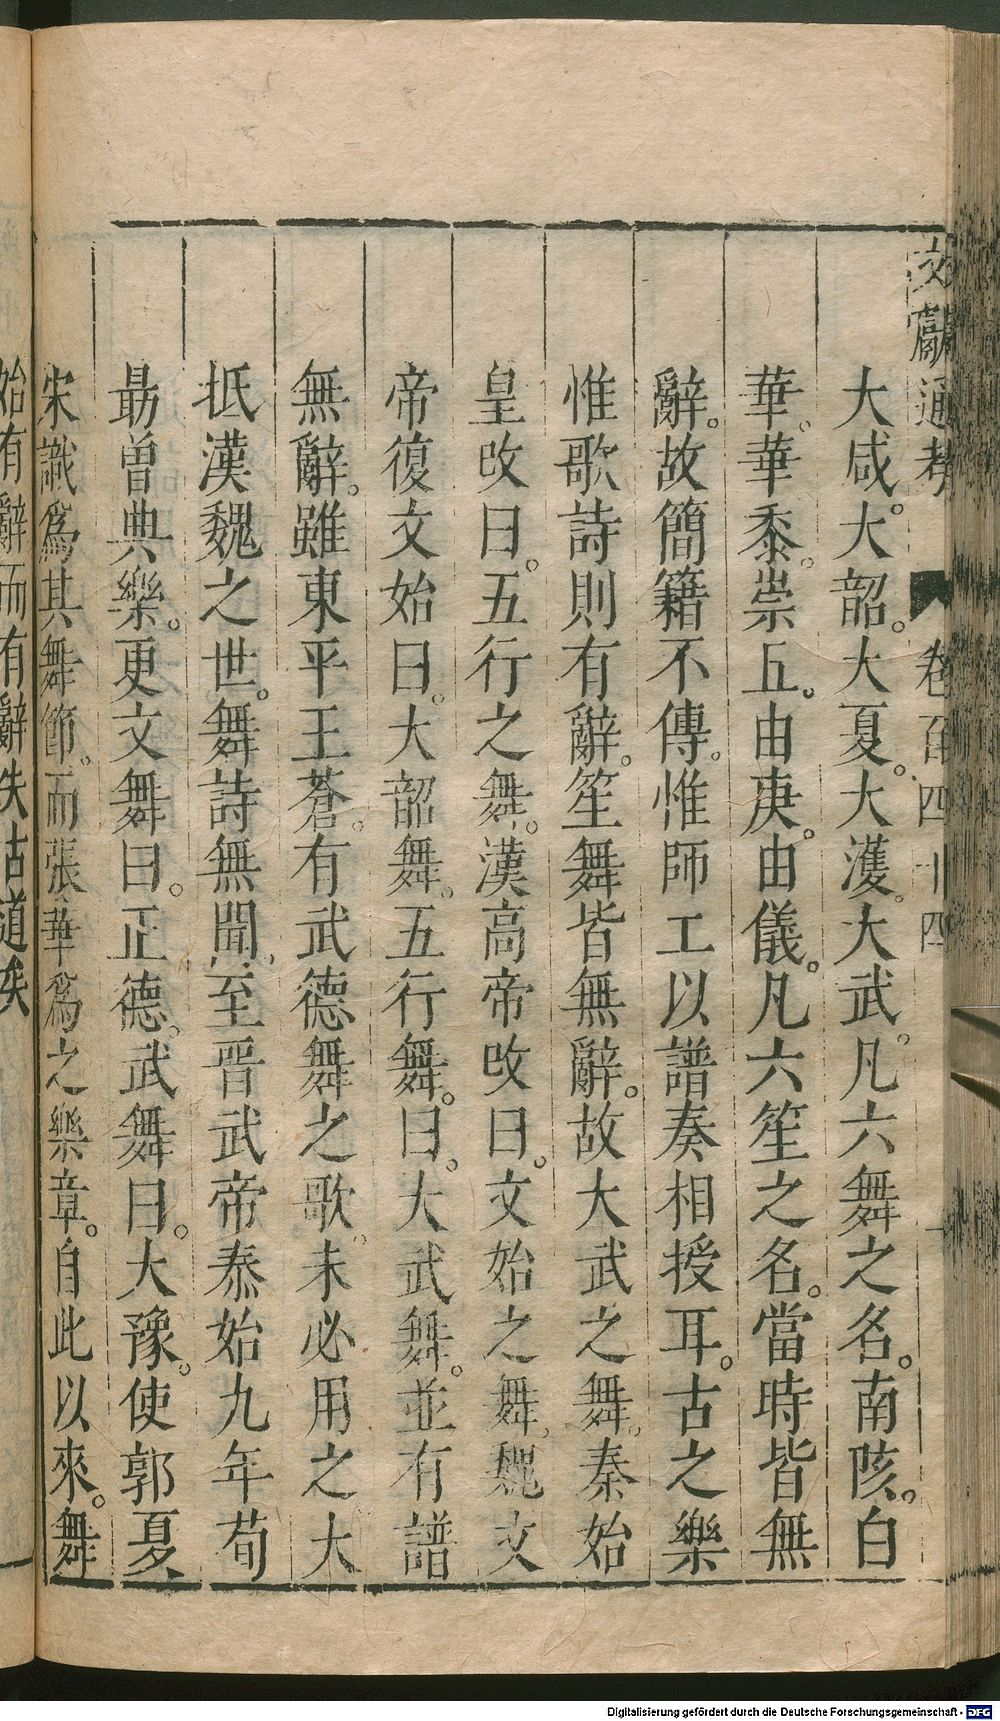 文獻通考 卷百四十四
大咸。大韶。大夏。大濩。大武。凡六舞之名。南陔。白
華。華黍。崇丘。由庚。由儀。凡六笙之名。當時皆無
辭。故簡籍不傳。惟師工以譜奏相授耳。古之樂
惟歌詩則有辭。笙舞皆無辭。故大武之舞。秦始
皇改曰。五行之舞。漢高帝改曰。文始之舞。魏文
帝復文始曰。大韶舞。五行舞。曰。大武舞。並有譜
無辭。雖東平王蒼。有武德舞之歌。未必用之大
抵漢魏之世。舞詩無聞。至晉武帝泰始九年荀
勗曽典樂。更文舞曰。正德。武舞曰。大豫。使郭夏、
宋識爲其舞節。而張華爲之樂章。自此以來。舞
始有辭而有辭失古道矣
Digitalisierung gefördert durch die Deutsche Forschungsgemeinschaft - DFG